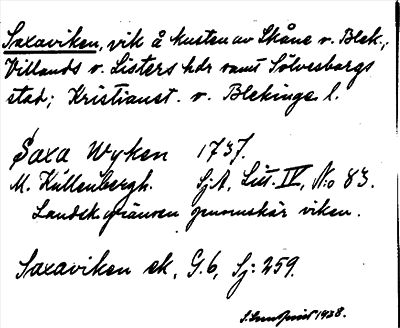 Saxaviken, vik å kusten av Skåne o. Blek.,
Villands o. Listers hdr samt Sölvesborgs
stad; Kristianst. o. Blekinge l.
Saxa Wyken 1737.
M. Küllenbergh. SjA, Litt. IV, N:o 83.
Landskgränsen genomskär viken.
Saxaviken ek, G.6, Sj: 259.
1938.